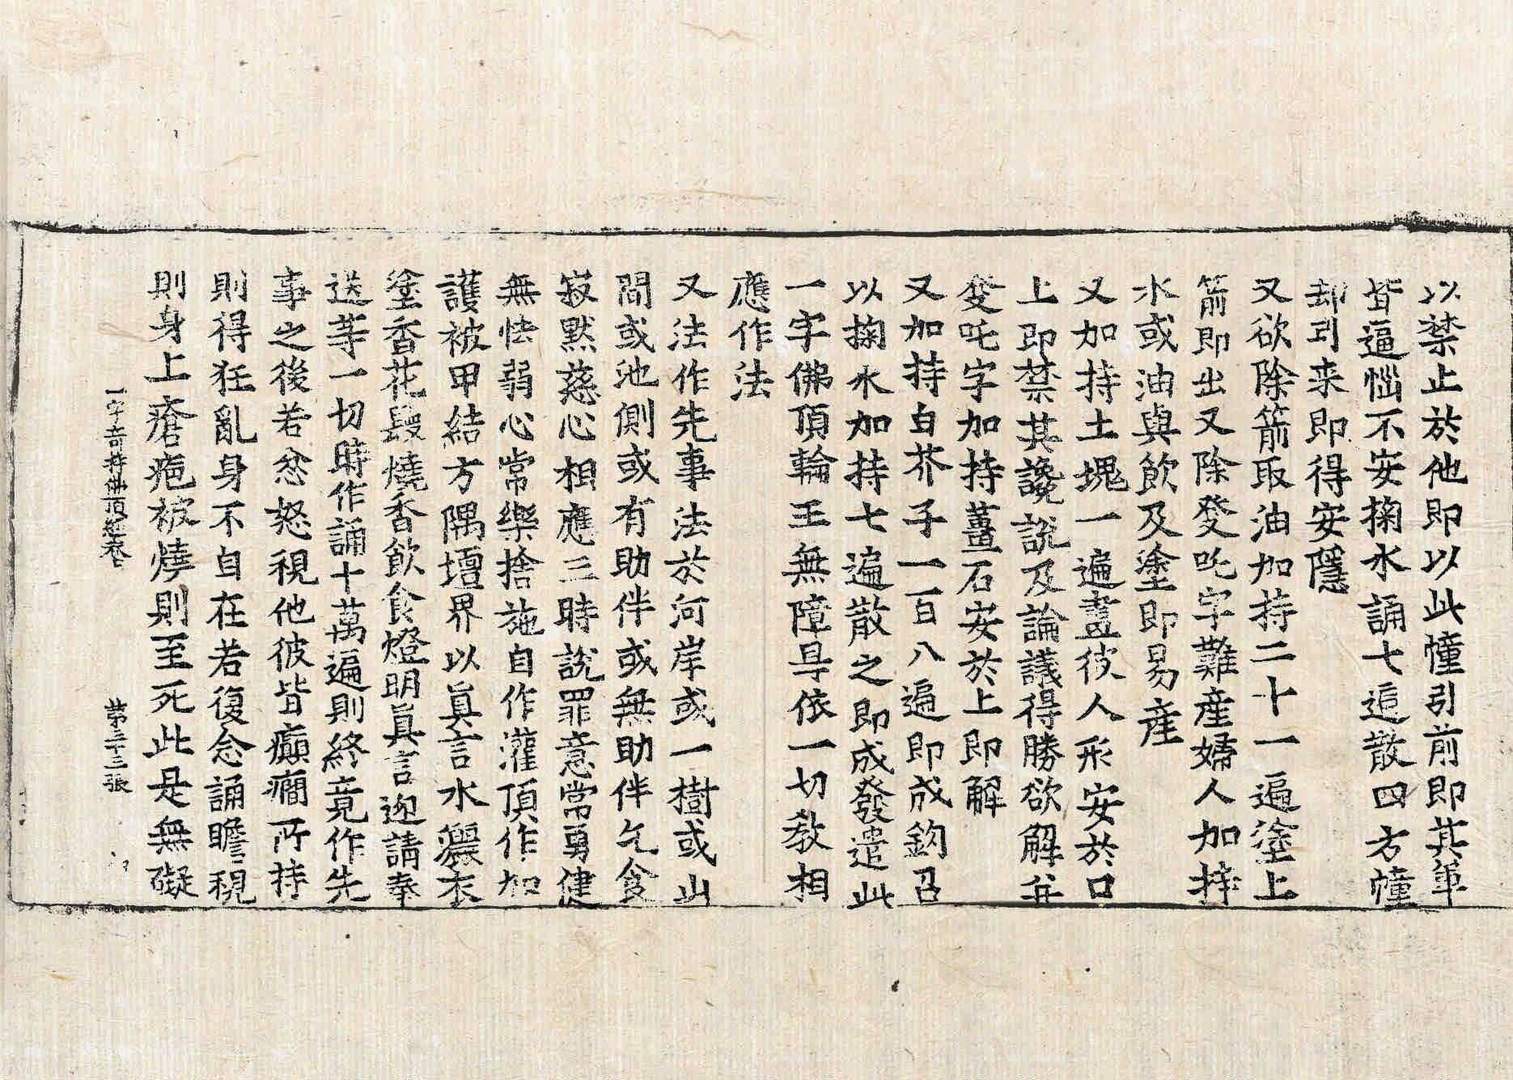 以禁止於他即以此幢引前即其軍
皆逼惱不安掬水誦七遍散四方幢
却到来即得安隱
又欲除箭取油加持二十一遍塗上
箭即出又除發吒字難産婦人加持
水或油與飲及塗即易産
又加持土塊一遍畫彼人形安於口
上即禁其讒說及論議得勝欲解并
發吒字加持薑石安於上即解
又加持白芥子一百八遍即成鈎召
以掬水加持七遍散之即成發遣此
一字佛頂輪王無障㝵依一切教相
應作法
又法作先事法於河岸或一樹或山
間或池側或有助伴或無助伴乞食
寂默慈心相應三時說罪意常勇健
無怯弱心常樂捨施自作灌頂作加
護被甲結方隅壇界以眞言水灑衣
塗香花鬘燒香飲食燈明眞言迎請奉
送等一切時作誦十萬遍則終竟作先
事之後若忿怒視他彼皆癲癎所持
則得狂亂身不自在若復念誦瞻視
則身上瘡疱被燒則至死此是無礙
一字奇特佛頂經卷 第三十三張